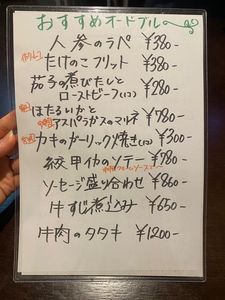 おすすめオードブル
人参のラペ ¥380-
たけのこフリット ¥380-
茄子の煮びたしと
ローストビーフ(1コ) ¥280-
ほたるいかと
アスパラガスのマリネ ¥780-
カキのガーリック焼き(1コ) ¥300-
紋甲イカのソテー ¥780-
ソーセージ盛り合わせ ¥860-
牛すじ煮込み ¥650-
牛肉のタタキ ¥1200-